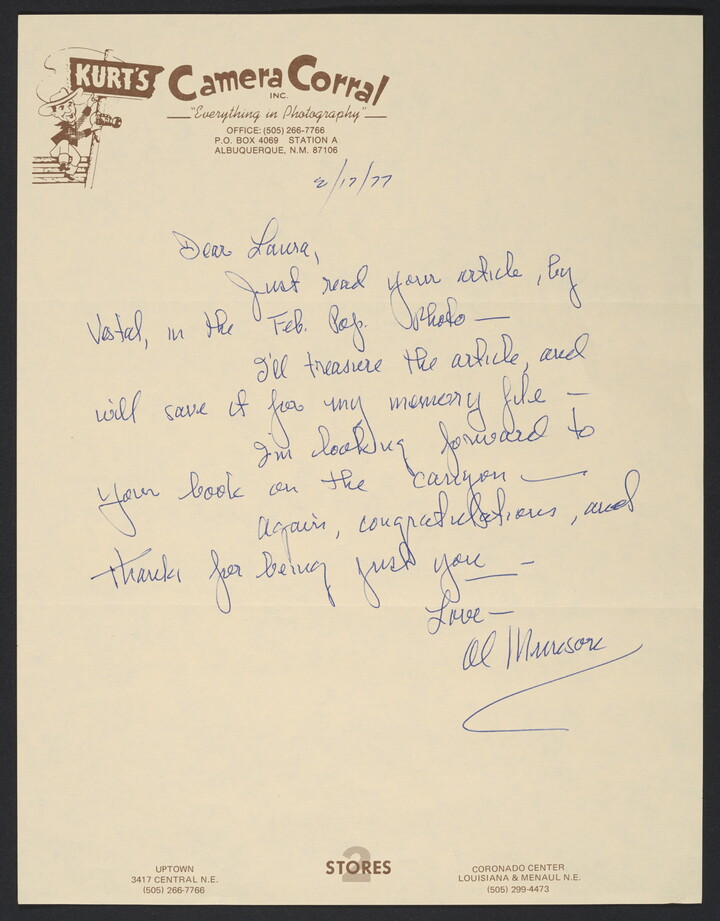 KURT'S Camera Corral
INC.
"Everything in Photography"
OFFICE: (505) 266-7766
P.O. BOX 4069 STATION A
ALBUQUERQUE, N.M. 87106
2/17/77
Dear Laura,
Just read your article, by
Vestal, in the Feb. Pop. Photo —
I'll treasure the article, and
will save it for my memory file —
I'm looking forward to
your book on the canyon —
Again, congratulations, and
thanks for being just you —
Love —
Al Munson
2 STORES
UPTOWN
3417 CENTRAL N.E.
(505) 266-7766
CORONADO CENTER
LOUISIANA & MENAUL N.E.
(505) 299-4473